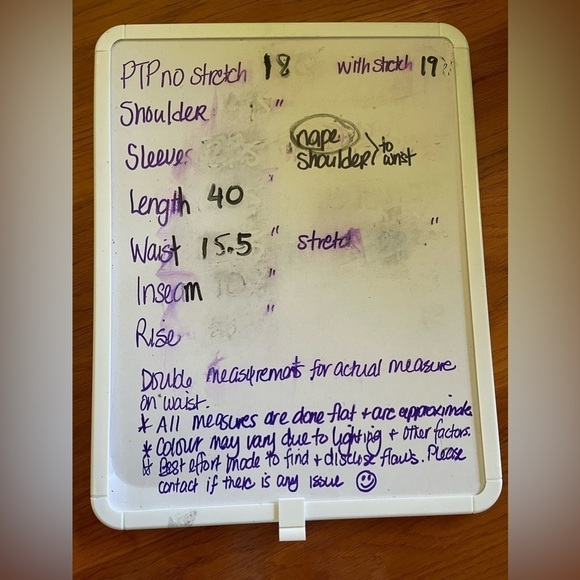 PTP no stretch 18 with stretch 19"
Shoulder "
Sleeves nape
shoulder > to wrist
Length 40 "
Waist 15.5 " stretch "
Inseam "
Rise "
Double measurements for actual measure
on waist.
* All measures are done flat + are approximate
* Colour may vary due to lighting + other factors.
* Best effort made to find + disclose flaws. Please
contact if there is any issue ☺